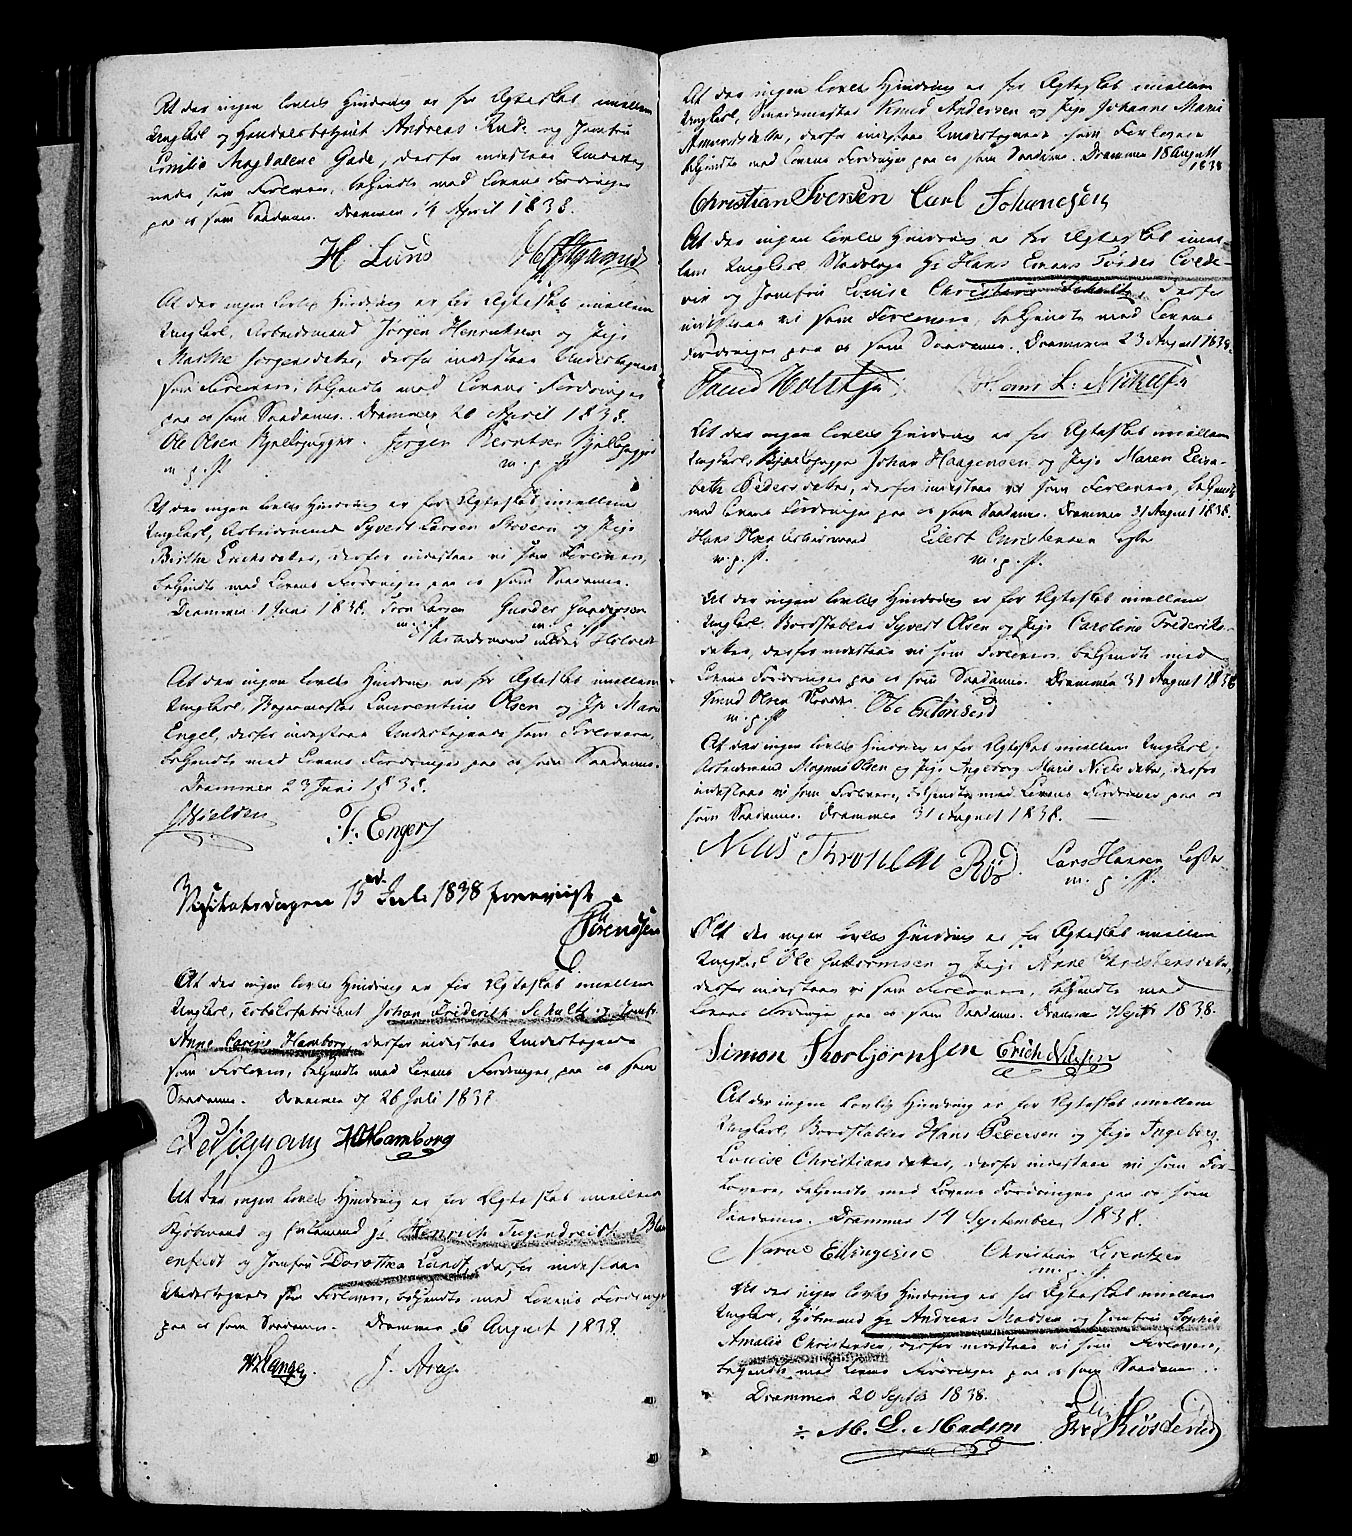 At der ingen lovlig Hindring er for Ægteskab imellem
Ungkarl og Handelsbetjent Andreas Rud og Jomfru
Emilie Magdalene Gade, derfor indestaae Underteg-
nede som Forlovere, bekjendte med Lovens Fordringer
paa os som Saadanne. Drammen 14 April 1838.
H Lund
At der ingen lovlig Hindring er for Ægteskab imellem
Ungkarl, Arbeidsmand Jørgen Henriksen og Pige
Marthe Jørgensdatter, derfor indestaae Undertegnede
som Forlovere, bekjendte med Lovens Fordringer
paa os som Saadanne. Drammen 20 April 1838.
Ole Olsen Pællepygger. Jørgen Berntsen
m. p. P. m. p. P.
At der ingen lovlig Hindring er for Ægteskab imellem
Ungkarl, Arbeidsmand Syvert Larsen og Pige
Birthe Erichsdatter, derfor indestaae vi som Forlovere,
bekjendte med Lovens Fordringer paa os som Saadanne.
Drammen 1 Juni 1838. Torn Larsen Gunder Gundersen
m. p. P. m. p. P.
Arbeidsmænd
At der ingen lovlig Hindring er for Ægteskab imellem
Ungkarl, Bagermester Laurentius Olsen og Jfr Marie
Engel, derfor indestaae Undertegnede som Forlovere,
bekjendte med Lovens Fordringer paa os som Saadanne.
Drammen 23 Juni 1838.
Nielsen T. Enger
Visitatsdagen 15 Juli 1838 foreviist
Sørenssen
At der ingen lovlig Hindring er for Ægteskab imellem
Ungkarl, Tobaksfabrikant Johan Friderik Schultz og Jomfr.
Anne Cathrine Hamborg, derfor indestaae Undertegnede
som Forlovere, bekjendte med Lovens Fordringer paa os som
Saadanne. Drammen d 26 Juli 1838.
HHamborg
At der ingen lovlig Hindring er for Ægteskab imellem
Kjøbmand og Enkemand Hr Henrich Tugendreich Blu-
enfeldt og Jomfru Dorothea Lund, derfor indestaae
Undertegnede som Forlovere, bekjendte med Lovens Fordringer
paa os som Saadanne. Drammen 6 August 1838.
Lange J. Arup
At der ingen lovlig Hindring er for Ægteskab imellem
Ungkarl, Smedemester Knud Andersen og Pige Johanne Marie
Amundsdatter, derfor indestaae Undertegnede som Forlovere
bekjendte med Lovens Fordringer paa os som Saadanne. Drammen 18 August
1838
Christian Iversen Carl Johanesen
At der ingen lovlig Hindring er for Ægteskab imel-
lem Ungkarl Stadslæge Hr Hans Evans Tordes Crede-
vin og Jomfru Louise Christine Schultz, derfor
indestaae vi som Forlovere, bekjendte med Lovens
Fordringer paa os som Saadanne. Drammen 23 August 1838.
Hans L. Nickels
At der ingen lovlig Hindring er for Ægteskab imellem
Ungkarl, Johan Haagensen og Pige Maren Elisa-
beth Pedersdatter, derfor indestaae vi som Forlovere, bekjendte
med Lovens Fordringer paa os som Saadanne. Drammen 31 August 1838.
Hans Olsen Arbeidsmand Eilert Christensen Losser
m. p. P. m. p. P.
At der ingen lovlig Hindring er for Ægteskab imellem
Ungkarl, Bordstabler Syvert Olsen og Pige Caroline Frederiks-
datter, derfor indestaae vi som Forlovere, bekjendte med
Lovens Fordringer paa os som Saadanne. Drammen 31 August 1838
Knud Olsen
m. p. P.
At der ingen lovlig Hindring er for Ægteskab imellem Ungkarl,
Arbeidsmand Magnus Olsen og Pige Ingeborg Marie Nielsdatter, derfor
indestaae vi som Forlovere, bekjendte med Lovens Fordringer paa os
som Saadanne. Drammen 31 August 1838.
Niels Thronsen Röd Lars Hansen Losser
m. p. P.
At der ingen lovlig Hindring er for Ægteskab imellem
Ungkarl Ole Guttormsen og Pige Anne Christensdatter,
derfor indestaae vi som Forlovere, bekjendte med
Lovens Fordringer paa os som Saadanne. Drammen 7 Septbr 1838.
Simon Thorbjørnsen Erich Nilsen
At der ingen lovlig Hindring er for Ægteskab imellem
Ungkarl, Bordstabler Hans Pedersen og Pige Ingeborg
Louise Christiansdatter, derfor indestaae vi som For-
lovere, bekjendte med Lovens Fordringer paa os som
Saadanne. Drammen 14 September 1838.
Christian Lorentzen
m. p. P.
At der ingen lovlig Hindring er for Ægteskab imellem
Ungkarl, Kjøbmand Hr Andreas Madsen og Jomfru Sophie
Amalie Christensen, derfor indestaae vi som Forlovere,
bekjendte med Lovens Fordringer paa os som Saadanne.
Drammen 20 Septbr 1838.
M. L. Madsen Kiøsterud